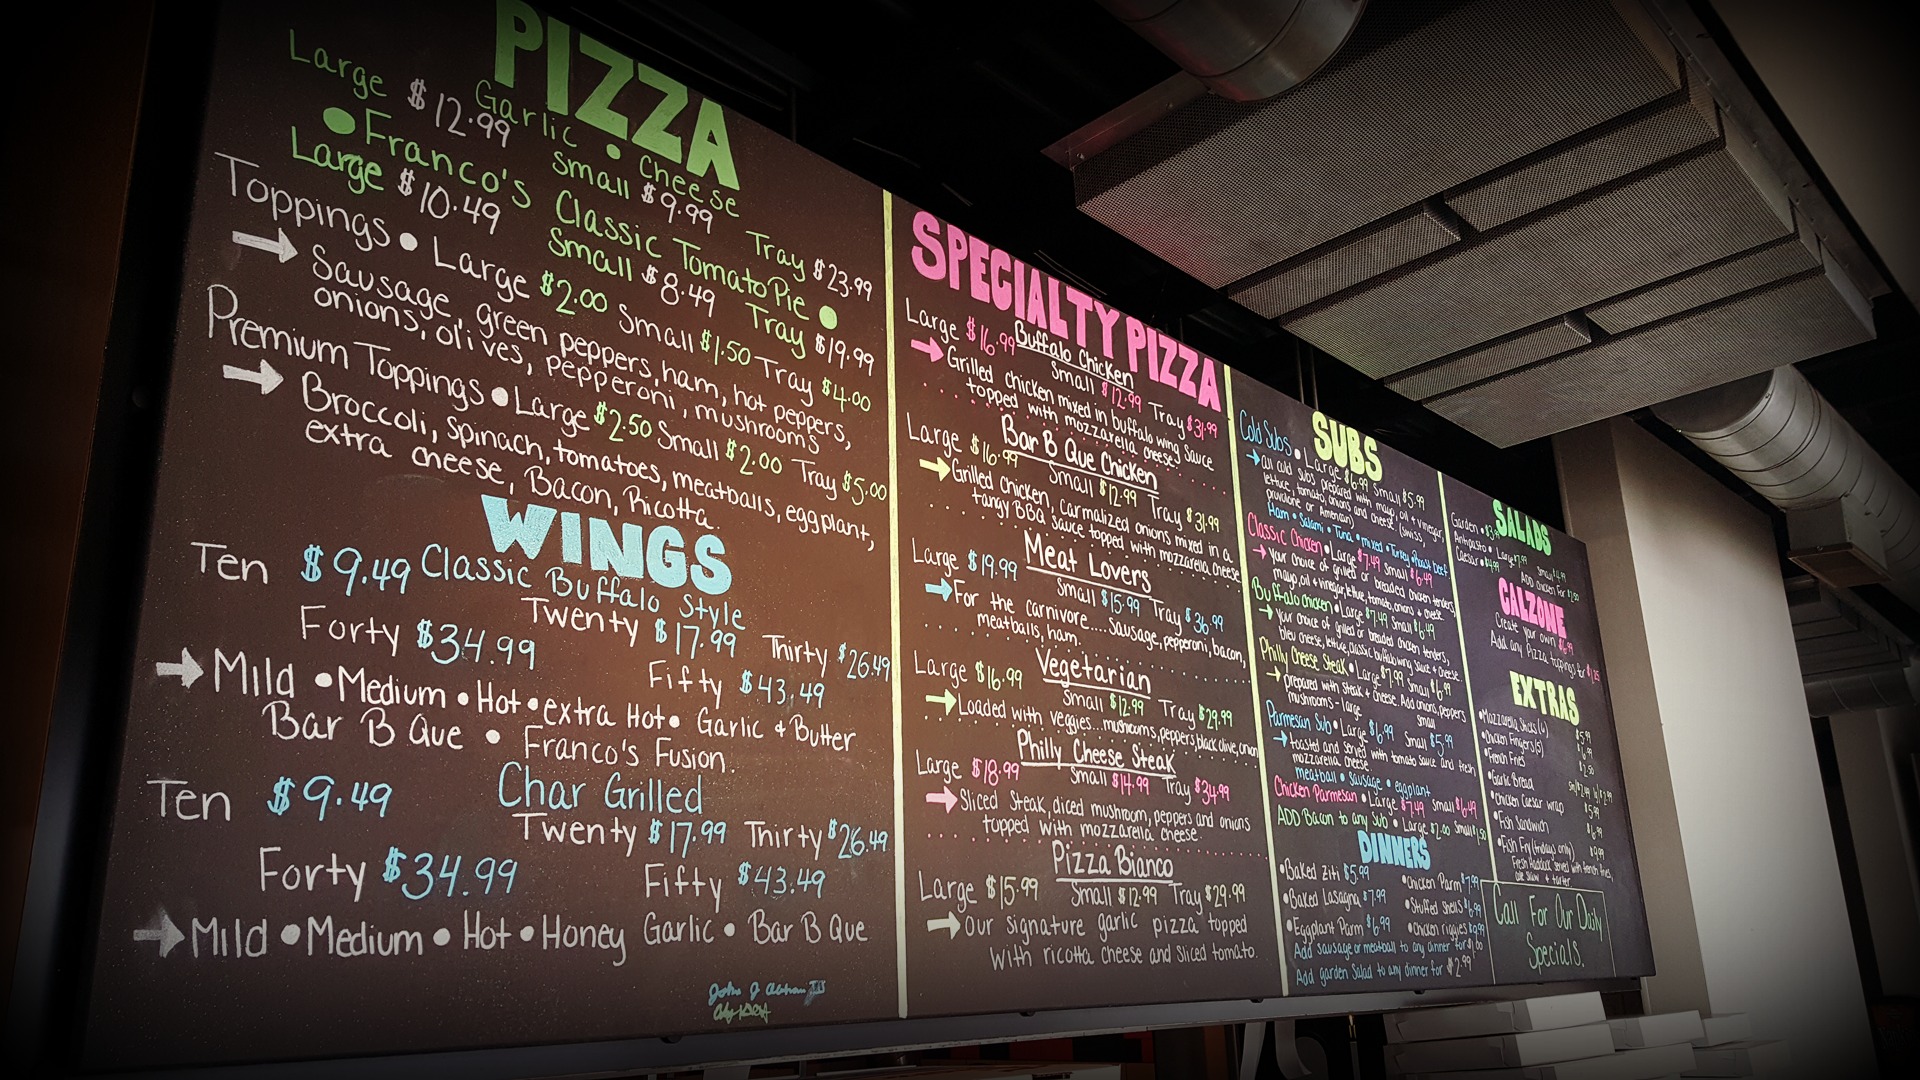 PIZZA
Garlic • Cheese
Large $12.99 Small $9.99 Tray $23.99
• Franco's Classic Tomato Pie •
Large $10.49 Small $8.49 Tray $19.99
Toppings • Large $2.00 Small $1.50 Tray $4.00
Sausage, green peppers, ham, hot peppers,
onions, olives, pepperoni, mushrooms
Premium Toppings • Large $2.50 Small $2.00 Tray $5.00
Broccoli, Spinach, tomatoes, meatballs, eggplant,
extra cheese, Bacon, Ricotta.
WINGS
Classic Buffalo Style
Ten $9.49 Twenty $17.99 Thirty $26.49
Forty $34.99 Fifty $43.49
Mild • Medium • Hot • extra Hot • Garlic & Butter
Bar B Que • Franco's Fusion.
Char Grilled
Ten $9.49 Twenty $17.99 Thirty $26.49
Forty $34.99 Fifty $43.49
Mild • Medium • Hot • Honey Garlic • Bar B Que
SPECIALTY PIZZA
Buffalo Chicken
Large $16.99 Small $12.99 Tray $31.99
Grilled chicken mixed in buffalo wing sauce
topped with mozzarella cheese.
Bar B Que Chicken
Large $16.99 Small $12.99 Tray $31.99
Grilled chicken, Carmalized onions mixed in a
tangy BBQ sauce topped with mozzarella cheese
Meat Lovers
Large $19.99 Small $15.99 Tray $36.99
For the carnivore.... Sausage, pepperoni, bacon,
meatballs, ham.
Vegetarian
Large $16.99 Small $12.99 Tray $29.99
Loaded with veggies... mushrooms, peppers, black olive, onion
Philly Cheese Steak
Large $18.99 Small $14.99 Tray $34.99
Sliced Steak, diced mushroom, peppers and onions
topped with mozzarella cheese.
Pizza Bianco
Large $15.99 Small $12.99 Tray $29.99
Our signature garlic pizza topped
with ricotta cheese and Sliced tomato.
SUBS
Cold Subs • Large $6.99 Small $5.99
all cold subs prepared with mayo, oil + vinegar,
lettuce, tomato, onions and cheese (Swiss,
provolone or American)
Ham • Salami • Tuna • mixed • Turkey • Roast beef
Classic Chicken • Large $7.49 Small $6.49
your choice of grilled or breaded chicken tenders,
mayo, oil + vinegar, lettuce, tomato, onions + cheese
Buffalo chicken • Large $7.49 Small $6.49
your choice of grilled or breaded chicken tenders,
bleu cheese, lettuce, classic buffalo wing sauce + cheese.
Philly Cheese Steak • Large $7.99 Small $6.99
prepared with steak + cheese. Add onions, peppers
mushrooms - large small
Parmesan Sub • Large $6.99 Small $5.99
toasted and served with tomato sauce and fresh
mozzarella cheese
meatball • sausage • eggplant
Chicken Parmesan • Large $7.49 Small $6.49
ADD Bacon to any Sub • Large $2.00 Small $1.50
DINNERS
• Baked ziti $5.99 • Chicken Parm $7.99
• Baked Lasagna $7.99 • Stuffed shells $6.99
• Eggplant Parm $6.99 • Chicken riggies $9.99
Add sausage or meatball to any dinner for $1.00
Add garden Salad to any dinner for $2.99
SALADS
Garden •
Antipasto • Large $7.99 Small
Caesar • $4.99 ADD chicken for $2.50
CALZONE
Create your own
Add any Pizza toppings for
EXTRAS
• Mozzarella Sticks (6) $5.99
• Chicken Fingers (5)
• French Fries $2.50
• Garlic Bread
• Chicken Caesar wrap $5.99
• Fish Sandwich $6.99
• Fish Fry (fridays only) $9.99
Fresh Haddock served with french fries,
cole slaw + tarter
Call For Our Daily
Specials.